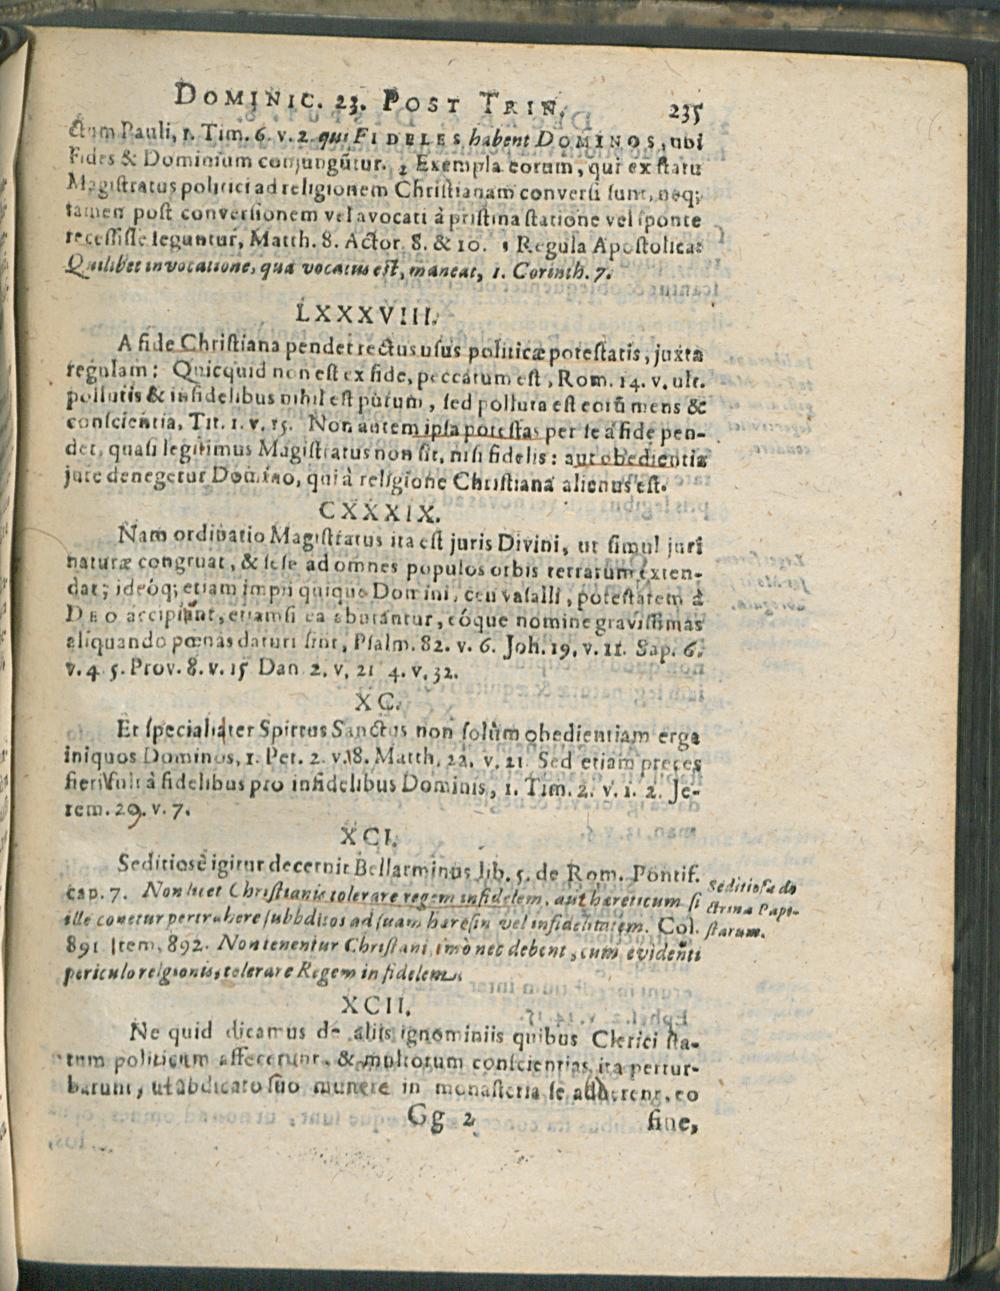 DOMINIC. 23. POST TRIN. 235
ctum Pauli, 1. Tim. 6. v. 2. qui FIDELES habent DOMINOS, ubi
Fides & Dominium conjungūtur. 2 Exempla eorum, qui ex statu
Magistratus politici ad religionem Christianam conversi sunt, neq;
tamen post conversionem vel avocati à pristina statione vel sponte
recessisse leguntur, Matth. 8. Actor. 8. & 10. 3 Regula Apostolica:
Quilibet in vocatione, qua vocatus est, maneat, 1. Corinth. 7.
LXXXVIII.
A fide Christiana pendet rectus usus politicæ potestatis, juxta
regulam: Quicquid non est ex fide, peccatum est, Rom. 14. v. ult.
pollutis & infidelibus nihil est purum, sed polluta est eorū mens &
conscientia, Tit. 1. v. 15. Non autem ipsa potestas per se à fide pen-
det, quasi legitimus Magistratus non sit, nisi fidelis: aut obedientia
jure denegetur Domino, qui à religione Christiana alienus est.
CXXXIX.
Nam ordinatio Magistratus ita est juris Divini, ut simul juri
naturæ congruat, & sese ad omnes populos orbis terrarum exten-
dat; ideóq; etiam impii quique Domini, ceu vasalli, potestatem à
DEO accipiunt, etiamsi ea abutantur, eóque nomine gravissimas
aliquando pœnas daturi sint, Psalm. 82. v. 6. Joh. 19. v. 11. Sap. 6.
v. 4. 5. Prov. 8. v. 15 Dan 2. v. 21 4. v. 32.
XC.
Et specialiter Spiritus Sanctus non solùm obedientiam erga
iniquos Dominos, 1. Pet. 2. v. 18. Matth. 22. v. 21 Sed etiam preces
fieri vult à fidelibus pro infidelibus Dominis, 1. Tim. 2. v. 1. 2. Je-
rem. 29. v. 7.
XCI.
Seditiosè igitur decernit Bellarminus lib. 5. de Rom. Pontif.
cap. 7. Non licet Christianis tolerare regem infidelem, aut hæreticum si
ille conetur pertrahere subbditos ad suam hæresin vel infidelitatem. Col.
891 Item, 892. Non tenentur Christiani, imò nec debent, cum evidenti
periculo religionis, tolerare Regem infidelem.
Seditiosa do
ctrina Papi-
starum.
XCII.
Ne quid dicamus de aliis ignominiis quibus Clerici sta-
tum politicum affecerunt, & multorum conscientias ita pertur-
barunt, ut abdicato suo munere in monasteria se abderent, eo
Gg 2 fine,